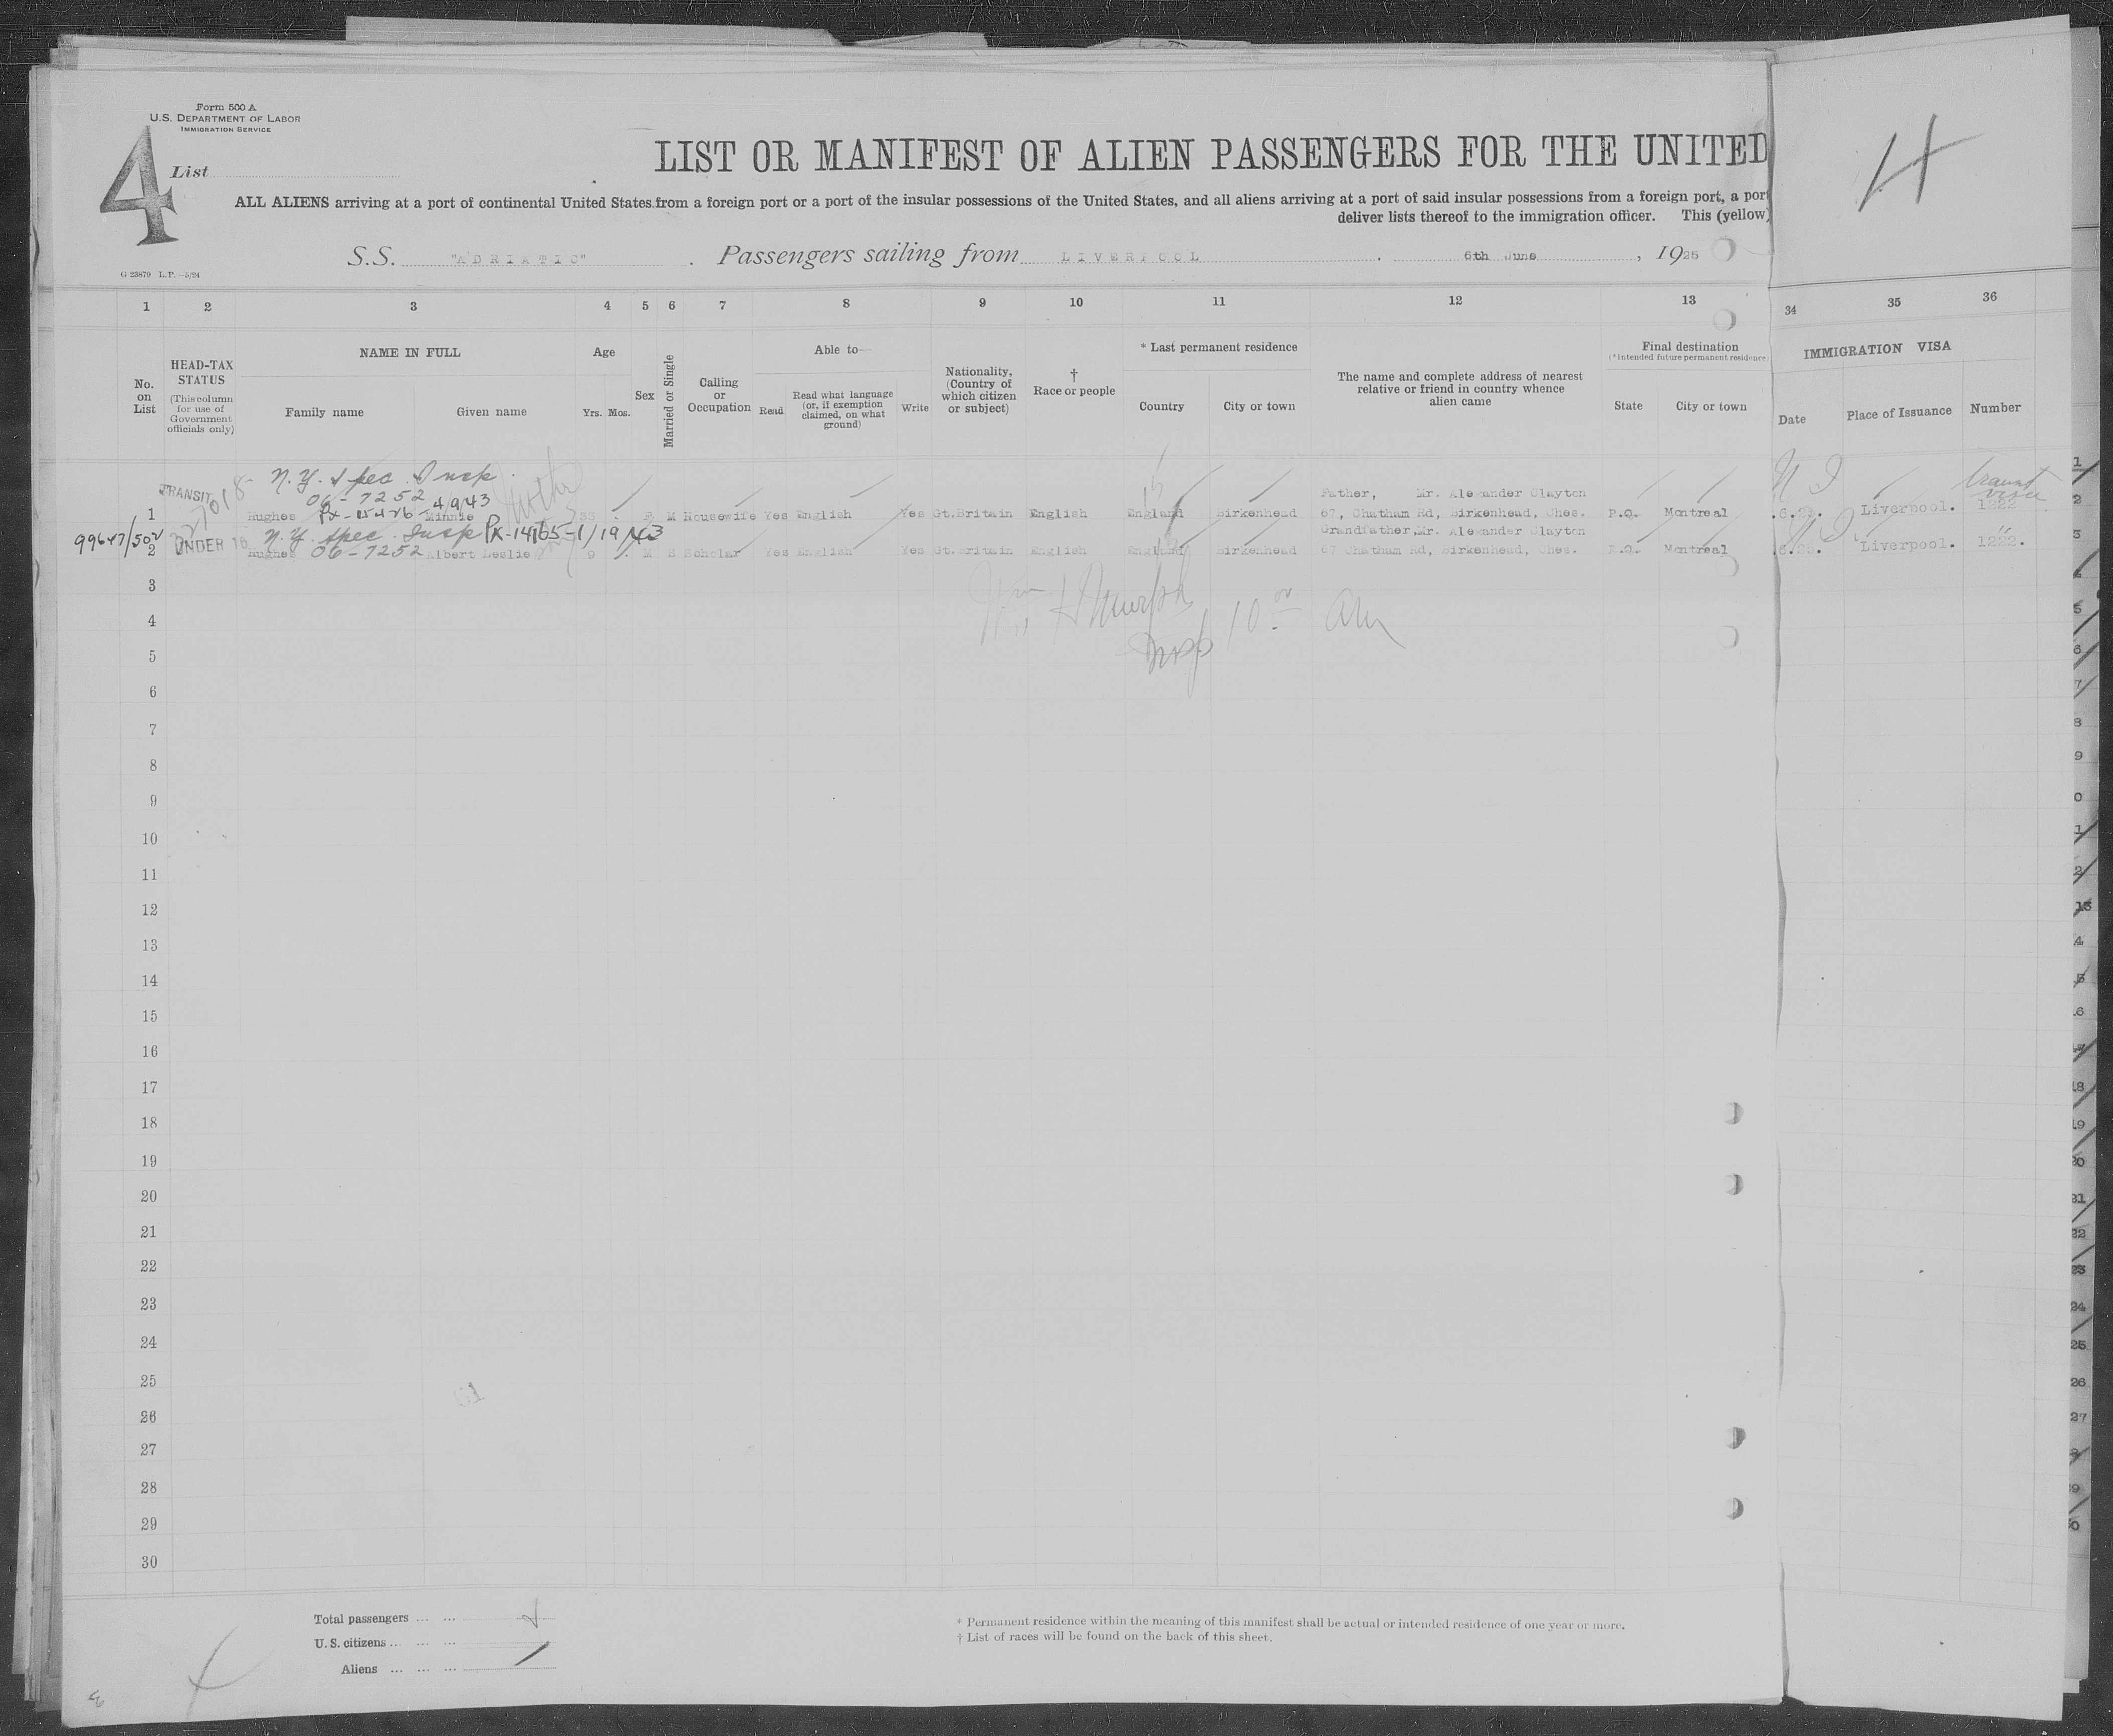 Form 500 A
U.S. DEPARTMENT OF LABOR
IMMIGRATION SERVICE
4
List
LIST OR MANIFEST OF ALIEN PASSENGERS FOR THE UNITED
4
ALL ALIENS arriving at a port of continental United States from a foreign port or a port of the insular possessions of the United States, and all aliens arriving at a port of said insular possessions from a foreign port, a port
deliver lists thereof to the immigration officer. This (yellow)
S.S. "ADRIATIC" . Passengers sailing from LIVERPOOL . 6th June , 1925
G 23879 L.P.—5/24
1 2 3 4 5 6 7 8 9 10 11 12 13 34 35 36
No. on List
HEAD-TAX STATUS
(This column for use of Government officials only)
NAME IN FULL
Family name Given name
Age
Yrs. Mos.
Sex
Married or Single
Calling or Occupation
Able to—
Read
Read what language (or, if exemption claimed, on what ground)
Write
Nationality, (Country of which citizen or subject)
†
Race or people
* Last permanent residence
Country City or town
The name and complete address of nearest relative or friend in country whence alien came
Final destination
(*Intended future permanent residence)
State City or town
IMMIGRATION VISA
Date Place of Issuance Number
N.Y. Spec. Insp.
TRANSIT 06-7252 4/9/43
Father, Mr. Alexander Clayton
1 Hughes Minnie 33 F M Housewife Yes English Yes Gt.Britain English England Birkenhead 67, Chatham Rd, Birkenhead, Ches. P.Q. Montreal Liverpool. 1222
N.Y. Spec. Insp PX-14165-1/19/43
Grandfather, Mr. Alexander Clayton
2 UNDER 16 Hughes 06-7252 Albert Leslie 9 M S Scholar Yes English Yes Gt.Britain English England Birkenhead 67 Chatham Rd, Birkenhead, Ches. P.Q. Montreal Liverpool. 1222.
3
4
5
6
7
8
9
10
11
12
13
14
15
16
17
18
19
20
21
22
23
24
25
26
27
28
29
30
Total passengers
U.S. citizens
Aliens
* Permanent residence within the meaning of this manifest shall be actual or intended residence of one year or more.
† List of races will be found on the back of this sheet.